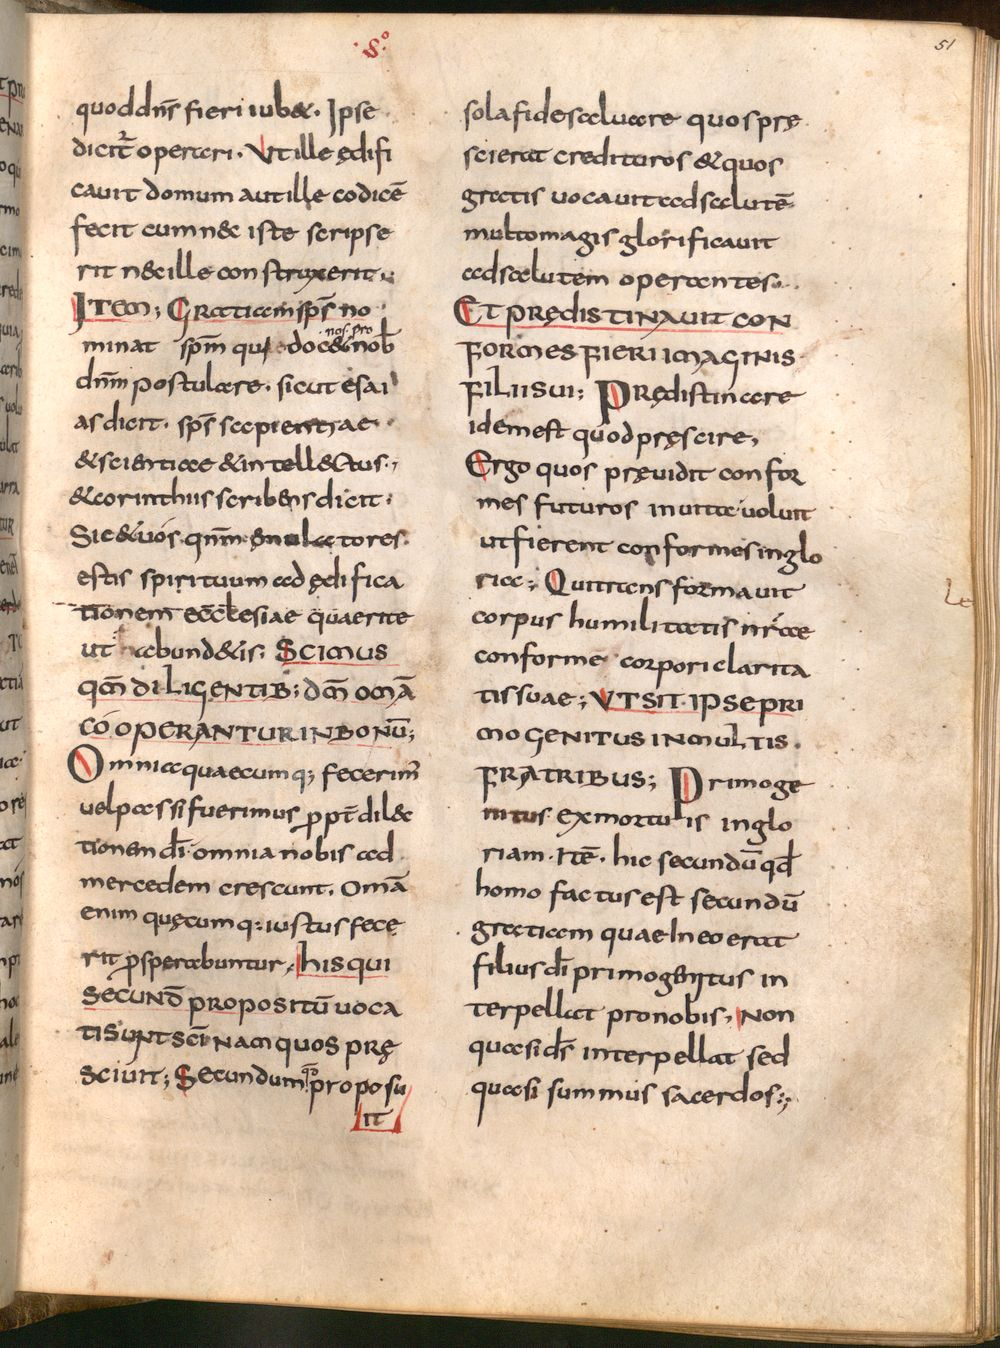 ·S·º
51
quod dn̄s fieri iub&. Ipse
dicit̄ operari. Vt ille ędifi
cauit domum aut ille codicē
fecit cum n&c iste scripse
rit n&c ille construxerit;
ITEM; Gratiam sp̄s no
minat sp̄m qui doc& nos pro nob
dn̄m postulare. sicut esai
as dicit. sp̄s sapientiae
& scientiae & intell&ctus;
& corinthiis scribens dicit.
Sic & uos qn̄m emulatores
estis spirituum ad ędifica
tionem ecclesiae quaerite
ut abund&is; SCIMUS
qm̄ DILIGENTIB; dm̄ omā
COOPERANTUR IN BONŪ;
Omnia quaecumq; fecerim'
uel passi fuerimus ꝓpt̄ dil&c
tionem dī omnia nobis ad
mercedem crescunt. Omā
enim quęcumq; iustus fece
rit ꝓsperabuntur. his qui
SECUND̄ PROPOSITŪ UOCA
TI SUNT SC̄I NAM QUOS PRĘ
SCIUIT; Secundum qd̄ proposu
it
sola fide saluare quos prę
scierat credituros & quos
gratis uocauit ad salutē
multo magis glorificauit
ad salutem operantes.
ET PRĘDISTINAUIT CON
FORMES FIERI IMAGINIS
FILII SUI; Prędistinare
idem est quod pręscire,
Ergo quos pręuidit confor
mes futuros in uita uoluit
ut fierent conformes in glo
ria; Qui trans formauit
corpus humilitatis nr̄ae
conforme corpori clarita
tis suae; UT SIT IPSE PRI
MOGENITUS IN MULTIS
FRATRIBUS; Primoge
nitus ex mortuis in glo
riam. Itē. hic secundū qd̄
homo factus est secundū
gratiam quae In eo erat
filius dī primogenitus in
terpellat pro nobis, Non
quasi ds̄ interpellat sed
quasi summus sacerdos;
Le